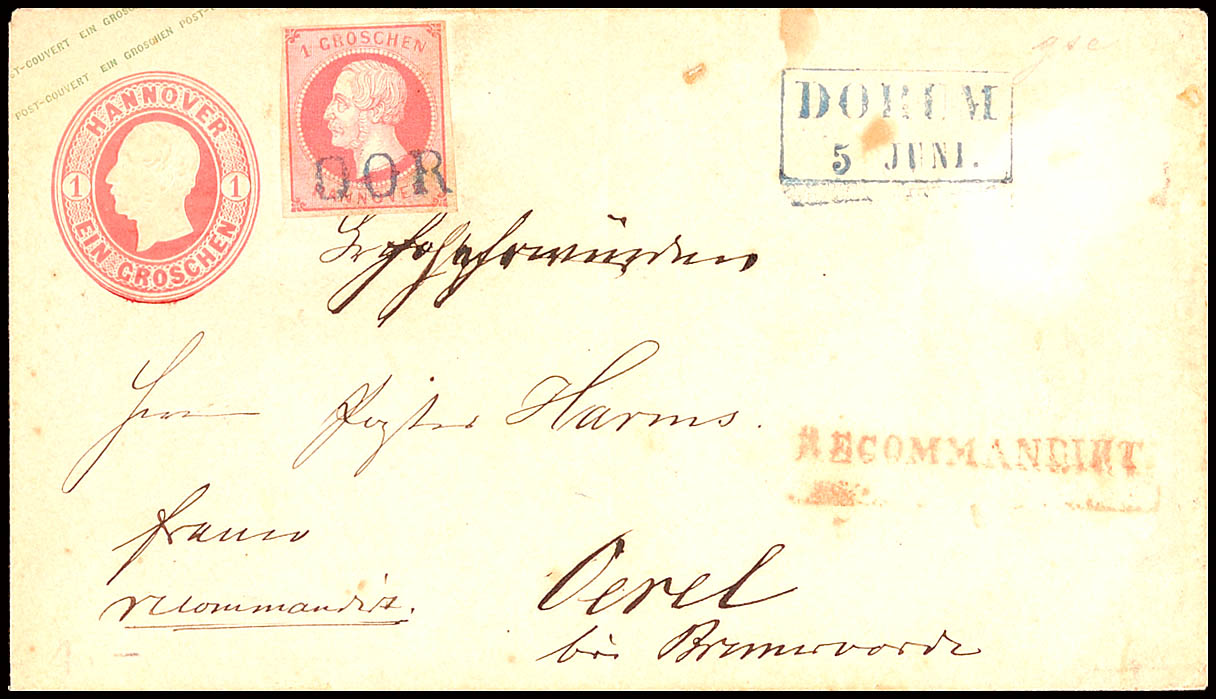 ST-COUVERT EIN GROSCHEN POST-
POST-COUVERT EIN GROSCHEN POST-
HANNOVER
1 1
EIN GROSCHEN
1 GROSCHEN
HANNOVER
DOR
DORUM
5 JUNI.
gse
Hochehrwürden
Herrn Pastor Harms.
RECOMMANDIRT
franco
recommandirt.
Oerel
bei Bremervoerde